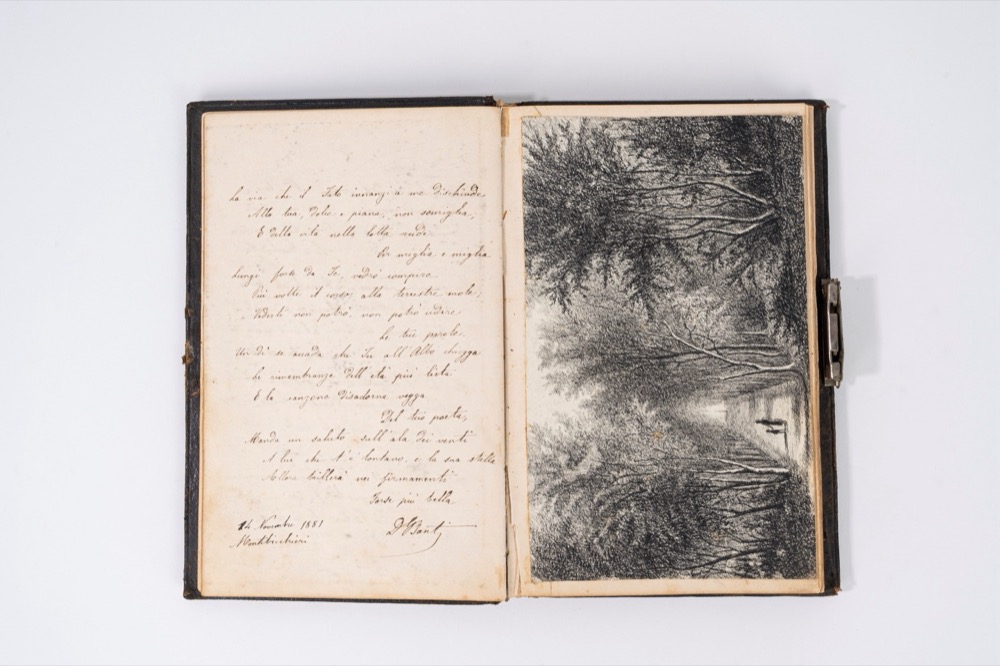 La via che il Fato innanzi a me dischiude
Alla tua, dolce e piana, non somiglia,
E dalla vita nella lotta rude
Per miglia e miglia
Lungi forse da Te, vedrò compire
Più volte il corso alla terrestre mole;
Vederti non potrò, non potrò udire
Le tue parole.
Un dì se accada che Tu all'Albo chiegga
Le rimembranze dell'età più lieta
E la canzone disadorna vegga
Del tuo poeta,
Manda un saluto sull'ala dei venti
A lui che t'è lontano, e la sua stella
Allora brillerà nei firmamenti
Forse più bella
14 Novembre 1881
D. Santi